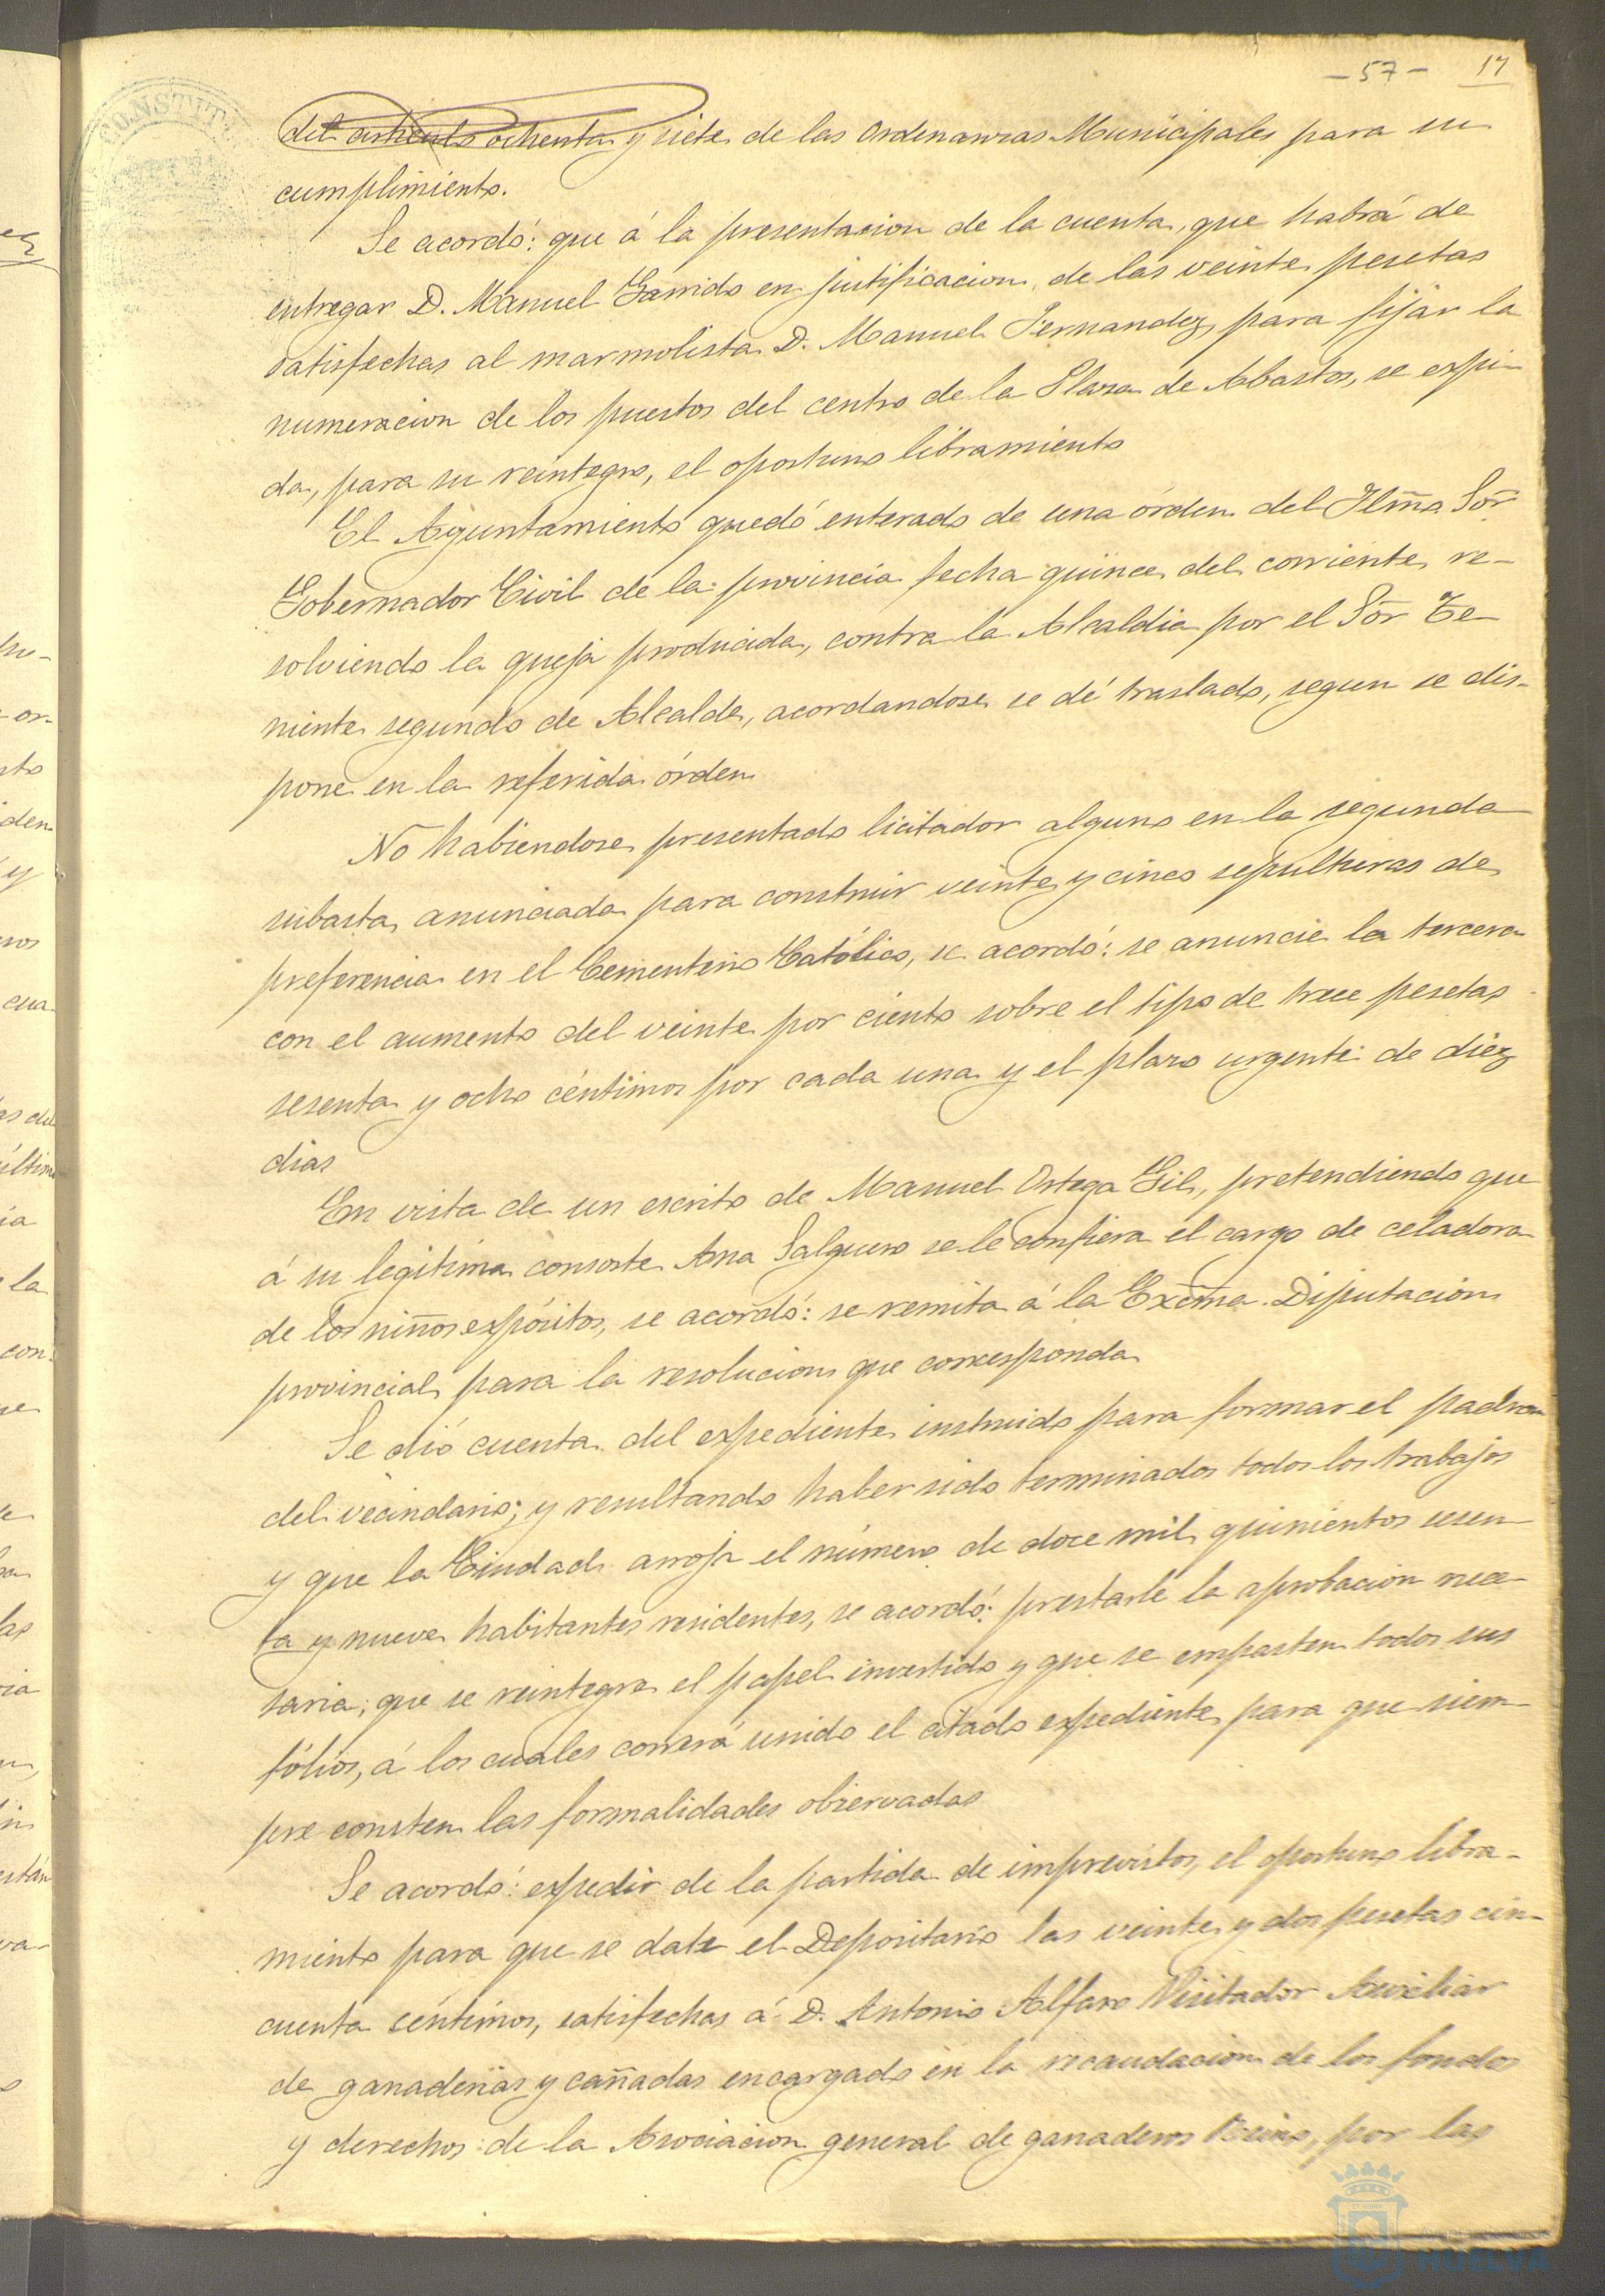 - 57 - 17
CONSTITU
del artículo ochenta y siete de las Ordenanzas Municipales para su
cumplimiento.
Se acordó: que á la presentacion de la cuenta, que habrá de
entregar D. Manuel Garrido en justificacion de las veinte pesetas
satisfechas al marmolista D. Manuel Fernandez, para fijar la
numeracion de los puestos del centro de la Plaza de Abastos, se expi-
da, para su reintegro, el oportuno libramiento
El Ayuntamiento quedó enterado de una órden del Ilmo Sor
Gobernador Civil de la provincia fecha quince del corriente, re-
solviendo la queja producida, contra la Alcaldia por el Sor Te-
niente segundo de Alcalde, acordandose se dé traslado, segun se dis-
pone en la referida órden
No habiendose presentado licitador alguno en la segunda
subasta anunciada para construir veinte y cinco sepulturas de
preferencia en el Cementerio Católico, se acordó: se anuncie la tercera
con el aumento del veinte por ciento sobre el tipo de trece pesetas
sesenta y ocho céntimos por cada una y el plazo urgente de diez
dias
En vista de un escrito de Manuel Ortega Gil, pretendiendo que
á su legítima consorte Ana Salguero se le confiera el cargo de celadora
de los niños expósitos, se acordó: se remita á la Excma. Diputacion
provincial para la resolucion que corresponda
Se dió cuenta del expediente instruido para formar el padron
del vecindario; y resultando haber sido terminados todos los trabajos
y que la Ciudad arroja el número de doce mil quinientos sesen-
ta y nueve habitantes residentes, se acordó: prestarle la aprobacion nece-
saria; que se reintegre el papel invertido y que se empasten todos sus
fólios, á los cuales correrá unido el citado expediente para que siem-
pre consten las formalidades observadas
Se acordó: expedir de la partida de imprevistos, el oportuno libra-
miento para que se date el Depositario las veinte y dos pesetas cin-
cuenta céntimos, satisfechas á D. Antonio Alfaro Visitador Auxiliar
de ganaderías y cañadas encargado en la recaudacion de los fondos
y derechos de la Asociacion general de ganaderos Reino, por las
HUELVA